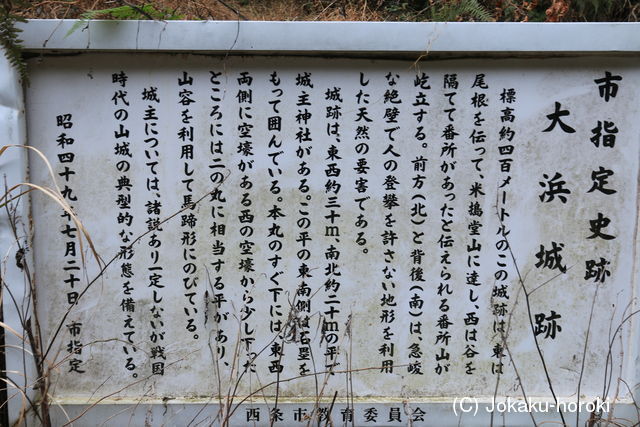 市指定史跡
大浜城跡
標高約四百メートルのこの城跡は、東は
尾根を伝って、米搗堂山に達し、西は谷を
隔てて番所があったと伝えられる番所山が
屹立する。前方(北)と背後(南)は、急峻
な絶壁で人の登攀を許さない地形を利用
した天然の要害である。
城跡は、東西約三十m、南北約二十mの平で
城主神社がある。この平の東南側は石塁を
もって囲んでいる。本丸のすぐ下には、東西
両側に空壕がある西の空壕から少し下った
ところには二の丸に相当する平があり、
山容を利用して馬蹄形にのびている。
城主については、諸説あり一定しないが戦国
時代の山城の典型的な形態を備えている。
昭和四十九年七月二十日 市指定
西条市教育委員会
(C) Jokaku-horoki